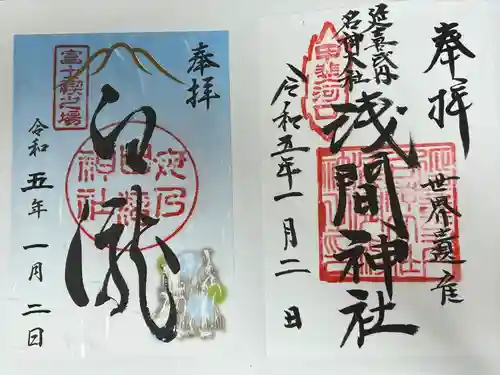 奉拝
白瀧
令和五年一月二日
奉拝
世界遺産
延喜式内
名神大社
浅間神社
甲斐河口
令和五年一月二日